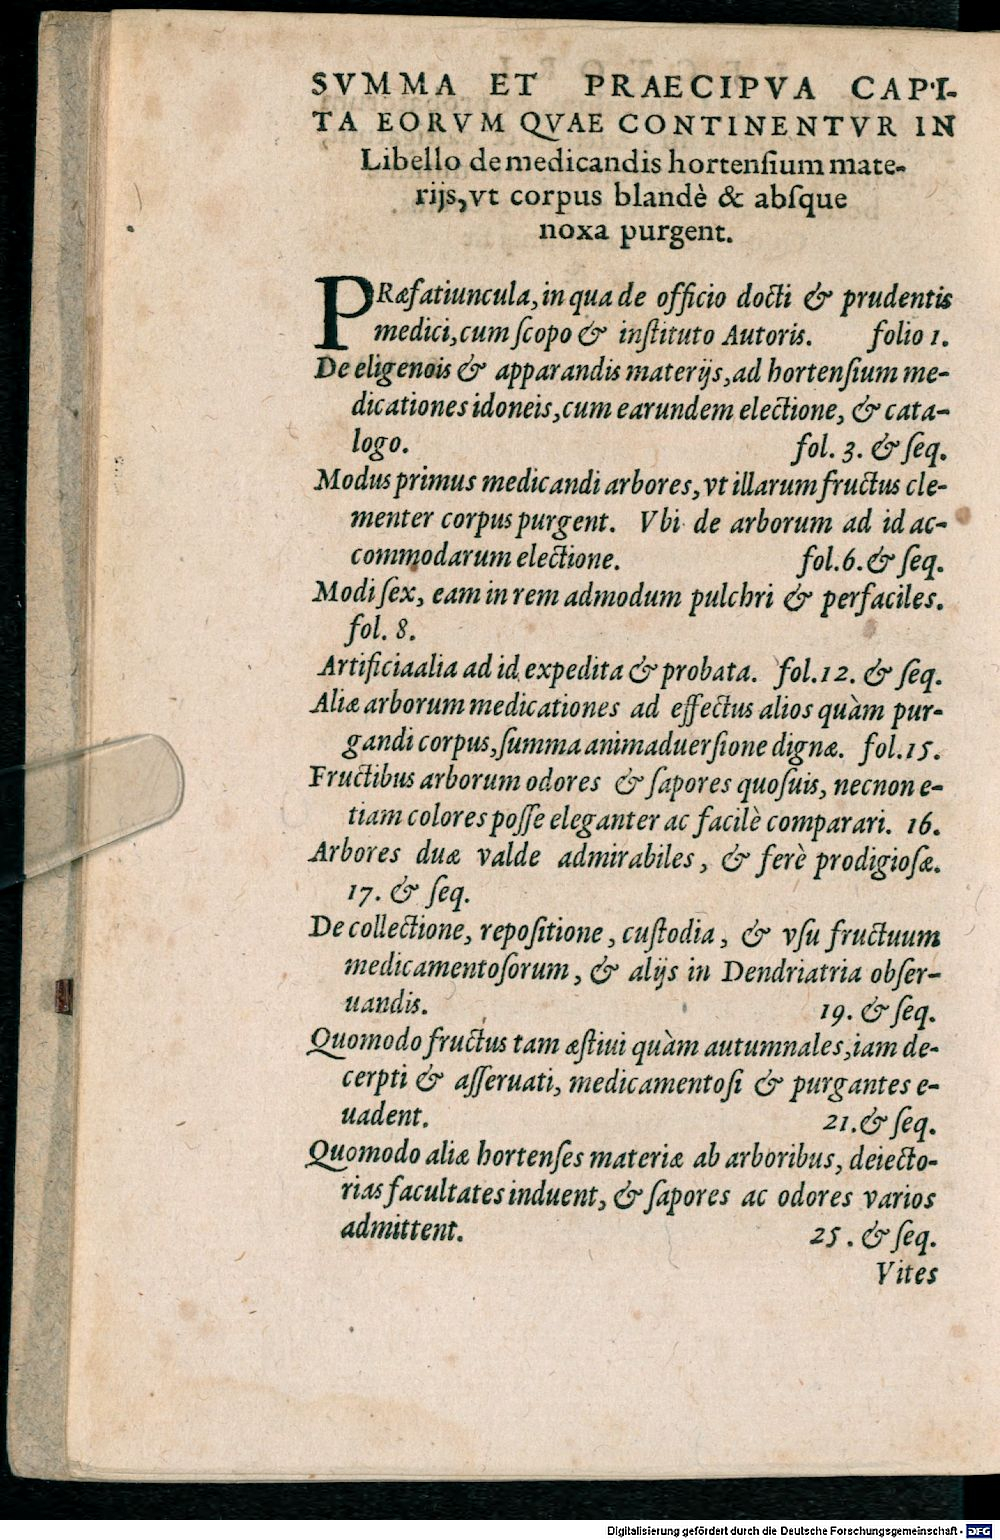 SVMMA ET PRAECIPVA CAPI-
TA EORVM QVAE CONTINENTVR IN
Libello de medicandis hortenſium mate-
rijs, vt corpus blandè & abſque
noxa purgent.
PRæfatiuncula, in qua de officio docti & prudentis
medici, cum ſcopo & inſtituto Autoris. folio 1.
De eligendis & apparandis materijs, ad hortenſium me-
dicationes idoneis, cum earundem electione, & cata-
logo. fol. 3. & ſeq.
Modus primus medicandi arbores, vt illarum fructus cle-
menter corpus purgent. Vbi de arborum ad id ac-
commodarum electione. fol. 6. & ſeq.
Modi ſex, eam in rem admodum pulchri & perfaciles.
fol. 8.
Artificia alia ad id expedita & probata. fol. 12. & ſeq.
Aliæ arborum medicationes ad effectus alios quàm pur-
gandi corpus, ſumma animaduerſione dignæ. fol. 15.
Fructibus arborum odores & ſapores quoſuis, necnon e-
tiam colores poſſe eleganter ac facilè comparari. 16.
Arbores duæ valde admirabiles, & ferè prodigioſæ.
17. & ſeq.
De collectione, repoſitione, cuſtodia, & vſu fructuum
medicamentoſorum, & alijs in Dendriatria obſer-
uandis. 19. & ſeq.
Quomodo fructus tam æſtiui quàm autumnales, iam de-
cerpti & aſſeruati, medicamentoſi & purgantes e-
uadent. 21. & ſeq.
Quomodo aliæ hortenſes materiæ ab arboribus, deiecto-
rias facultates induent, & ſapores ac odores varios
admittent. 25. & ſeq.
Vites
Digitalisierung gefördert durch die Deutsche Forschungsgemeinschaft - DFG